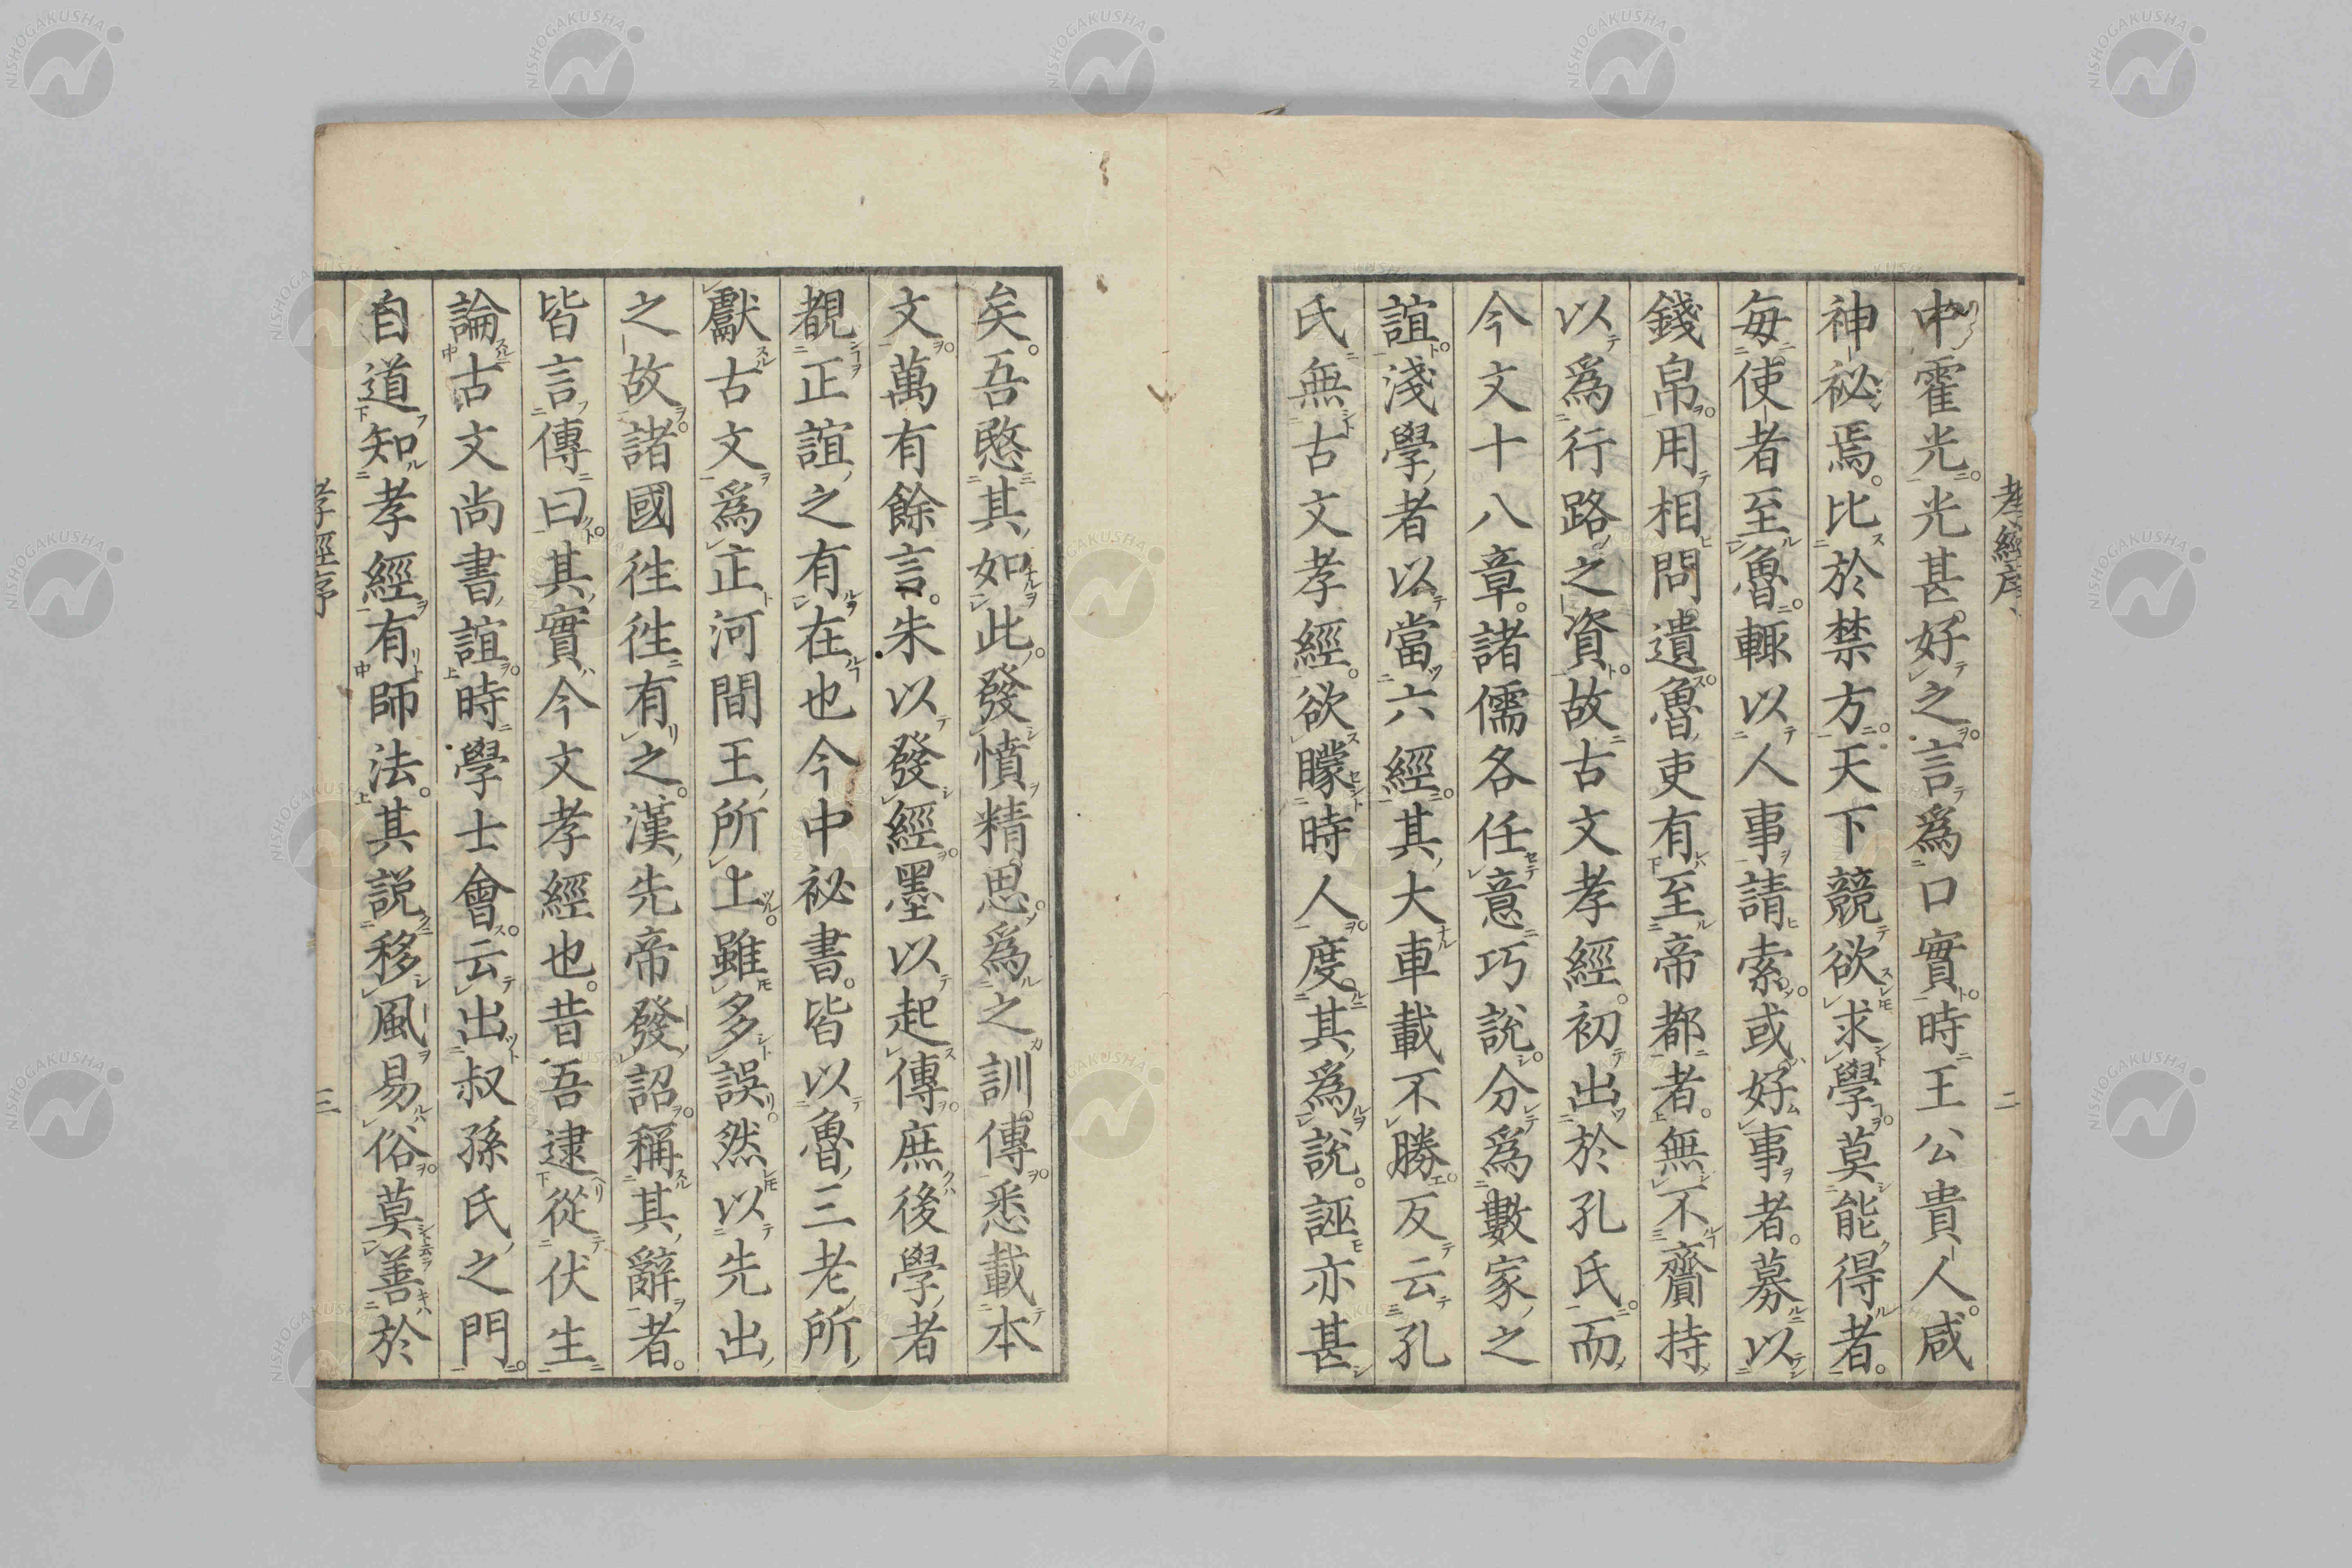 孝經序
二
中霍光光甚好之言爲口實時王公貴人咸
神祕焉比於禁方天下競欲求學莫能得者
每使者至魯輒以人事請索或好事者募以
錢帛用相問遺魯吏有至帝都者無不齎持
以爲行路之資故古文孝經初出於孔氏而
今文十八章諸儒各任意巧說分爲數家之
誼淺學者以當六經其大車載不勝反云孔
氏無古文孝經欲矇時人度其爲說誣亦甚
矣吾愍其如此發憤精思爲之訓傳悉載本
文萬有餘言朱以發經墨以起傳庶後學者
覩正誼之有在也今中祕書皆以魯三老所
獻古文爲正河間王所上雖多誤然以先出
之故諸國徃徃有之漢先帝發詔稱其辭者
皆言傳曰其實今文孝經也昔吾逮從伏生
論古文尚書誼時學士會云出叔孫氏之門
自道知孝經有師法其説移風易俗莫善於
孝經序
三
NISHOGAKUSHA